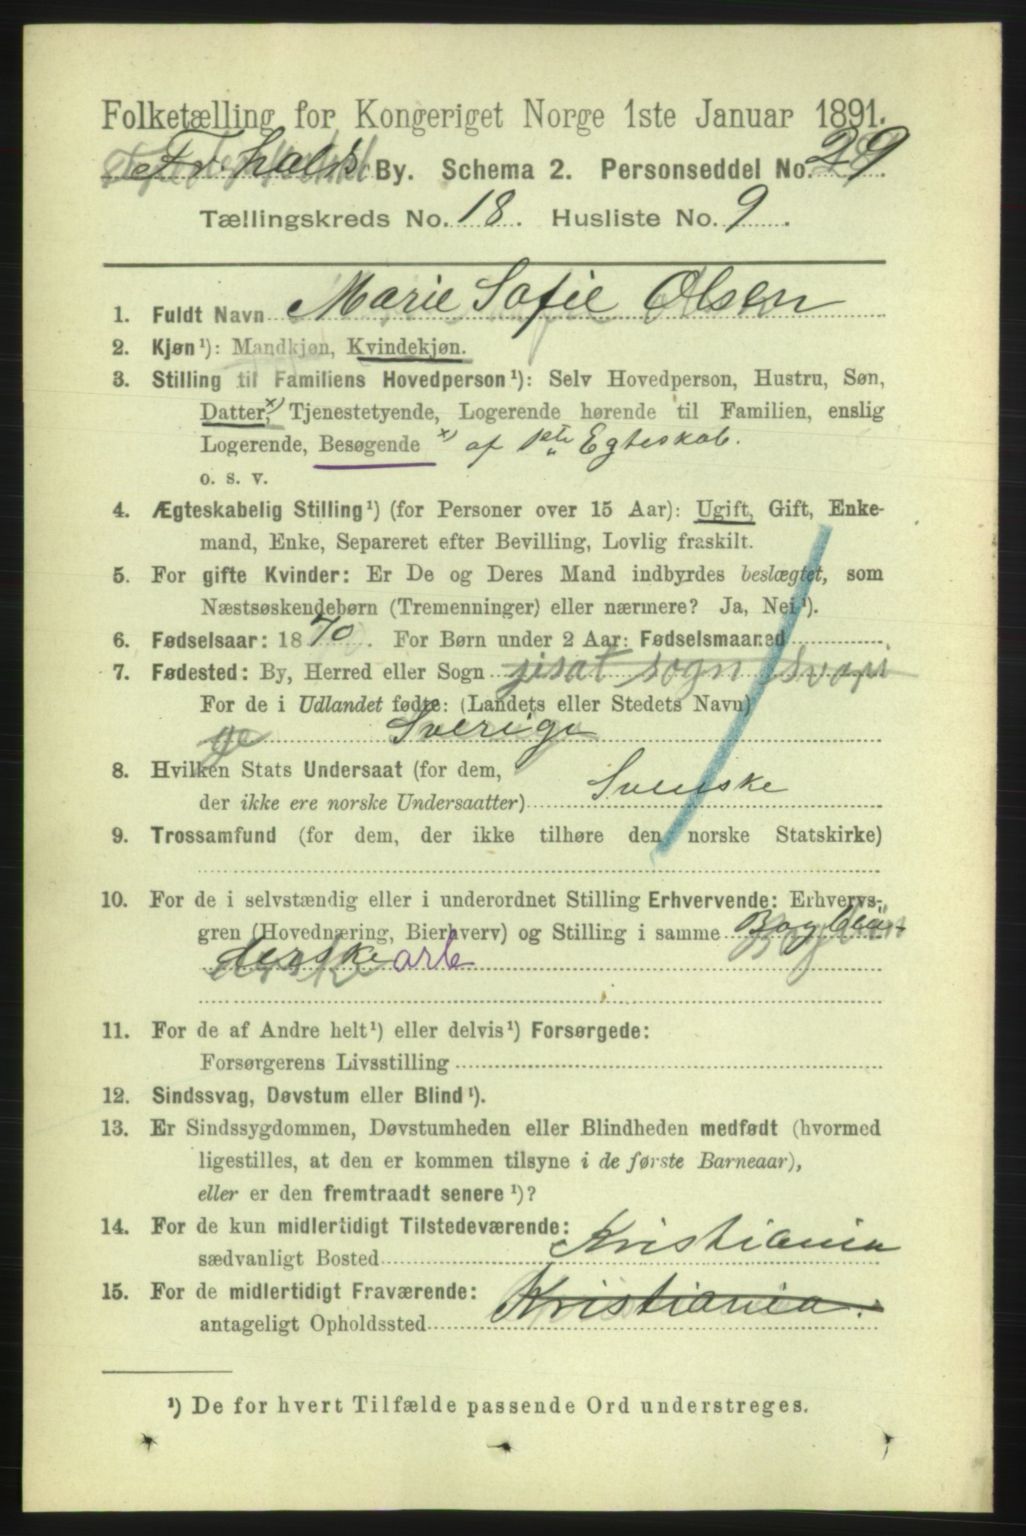 Folketælling for Kongeriget Norge 1ste Januar 1891.
Fr.halds By. Schema 2. Personseddel No. 29.
Tællingskreds No. 18. Husliste No. 9.
1. Fuldt Navn Marie Sofie Olsen
2. Kjøn¹): Mandkjøn, Kvindekjøn.
3. Stilling til Familiens Hovedperson¹): Selv Hovedperson, Hustru, Søn,
Datter,ˣ) Tjenestetyende, Logerende hørende til Familien, enslig
Logerende, Besøgende ˣ) af 1ste Egteskab.
o. s. v.
4. Ægteskabelig Stilling¹) (for Personer over 15 Aar): Ugift, Gift, Enke-
mand, Enke, Separeret efter Bevilling, Lovlig fraskilt.
5. For gifte Kvinder: Er De og Deres Mand indbyrdes beslægtet, som
Næstsøskendebørn (Tremenninger) eller nærmere? Ja, Nei¹).
6. Fødselsaar: 1870. For Børn under 2 Aar: Fødselsmaaned
7. Fødested: By, Herred eller Sogn sogn
For de i Udlandet fødte: (Landets eller Stedets Navn)
ge Sverige
8. Hvilken Stats Undersaat (for dem,
der ikke ere norske Undersaatter) Svenske
9. Trossamfund (for dem, der ikke tilhøre den norske Statskirke)
10. For de i selvstændig eller i underordnet Stilling Erhvervende: Erhvervs-
gren (Hovednæring, Bierhverv) og Stilling i samme Bogbin-
derske arb
11. For de af Andre helt¹) eller delvis¹) Forsørgede:
Forsørgerens Livsstilling
12. Sindssvag, Døvstum eller Blind¹).
13. Er Sindssygdommen, Døvstumheden eller Blindheden medfødt (hvormed
ligestilles, at den er kommen tilsyne i de første Barneaar),
eller er den fremtraadt senere¹)?
14. For de kun midlertidigt Tilstedeværende:
sædvanligt Bosted Kristiania
15. For de midlertidigt Fraværende:
antageligt Opholdssted Kristiania.
¹) De for hvert Tilfælde passende Ord understreges.